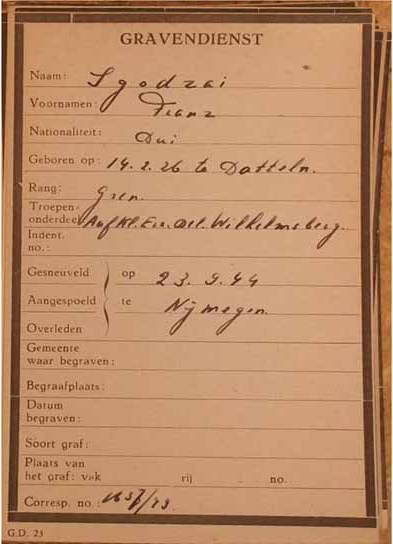 GRAVENDIENST
Naam: Sgodzai
Voornamen: Franz
Nationaliteit: Dui
Geboren op: 14.2.26 te Datteln.
Rang: Gren.
Troepen-
onderdeel: Aufkl. Ers. Abt. Wilhelmsberg.
Indent.
no.:
Gesneuveld } op 23.9.44
Aangespoeld } te Nijmegen.
Overleden
Gemeente
waar begraven:
Begraafplaats:
Datum
begraven:
Soort graf:
Plaats van
het graf: vak rij no.
Corresp. no:
G.D. 23